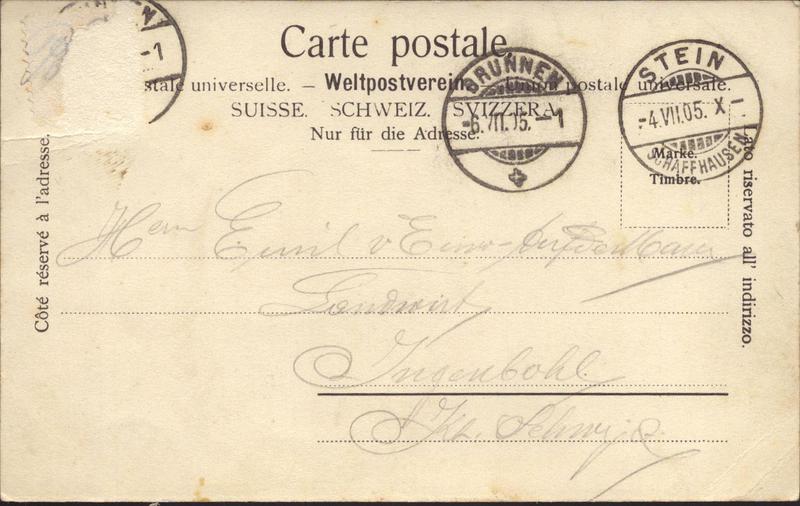 Carte postale.
stale universelle. – Weltpostverein – Union postale universale.
SUISSE. SCHWEIZ. SVIZZERA.
Nur für die Adresse.
Côté réservé à l'adresse.
Lato riservato all' indirizzo.
Marke.
Timbre.
-1
BRUNNEN
-5.VII.05.-1
STEIN
-4.VII.05. X-
SCHAFFHAUSEN
Herrn Emil v
Landwirt
Ingenbohl
Kt. Schwyz.